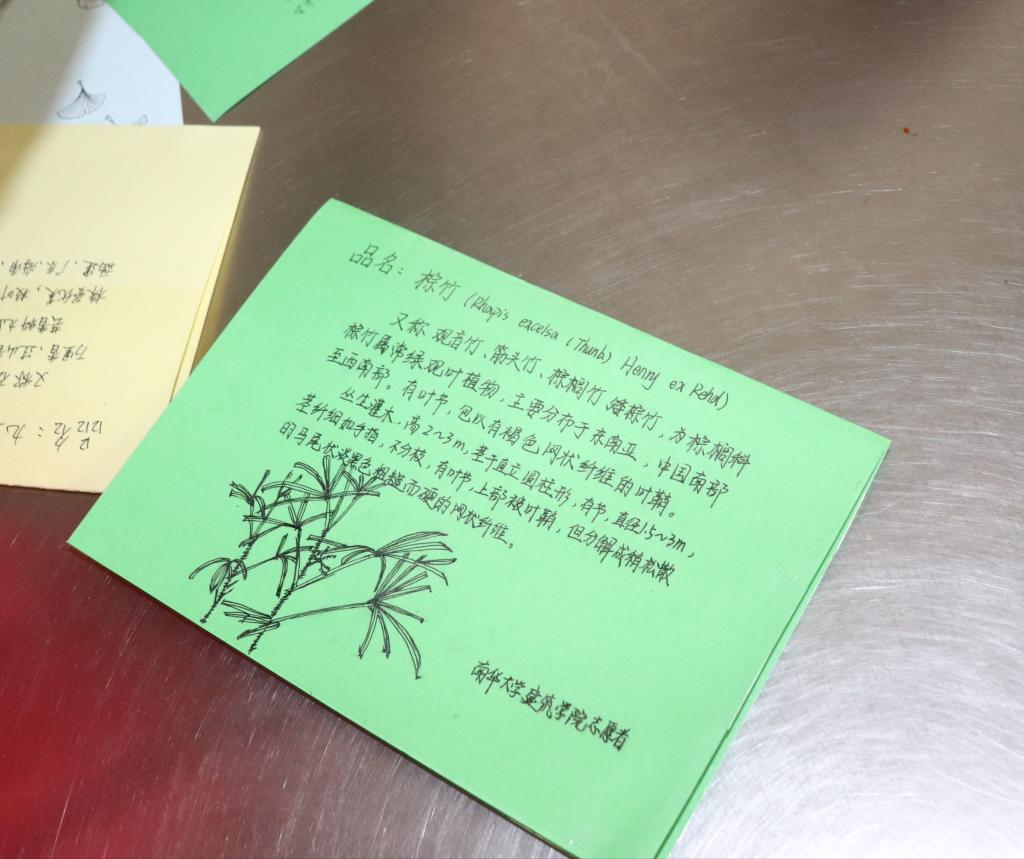 品名：棕竹 (Rhapis excelsa (Thunb) Henry ex Rehd)
又称观音竹、筋头竹、棕榈竹、矮棕竹，为棕榈科
棕竹属常绿观叶植物，主要分布于东南亚，中国南部
至西南部。有叶节，包以有褐色网状纤维的叶鞘。
丛生灌木，高2~3m，茎干直立圆柱形，有节，直径1.5~3m，
茎纤细如手指，不分枝，有叶节，上部被叶鞘，但分解成稍松散
的马尾状淡黑色粗糙而硬的网状纤维。
南华大学建筑学院志愿者
又称
万里香、
芸香科九
株姿优美，枝叶
福建、广东、海南、